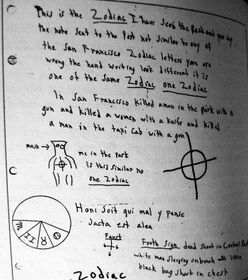 This is the Zodiac I have seen the Post and you say
the note sent to the Post not similar to any of
the San Francisco Zodiac letters you are
wrong the hand writing look different it is
one of the same Zodiac one Zodiac
In San Francisco killed a man in the park with a
gun and killed a women with a knife and killed
a man in the taxi cab with a gun
me in the park
is this similar no
one Zodiac
Honi soit qui mal y pense
Jacta est alea
Faust
Forth Sign dead shoot in Central Park
white man sleeping on bench with little
black bag shoot in chest
Zodiac